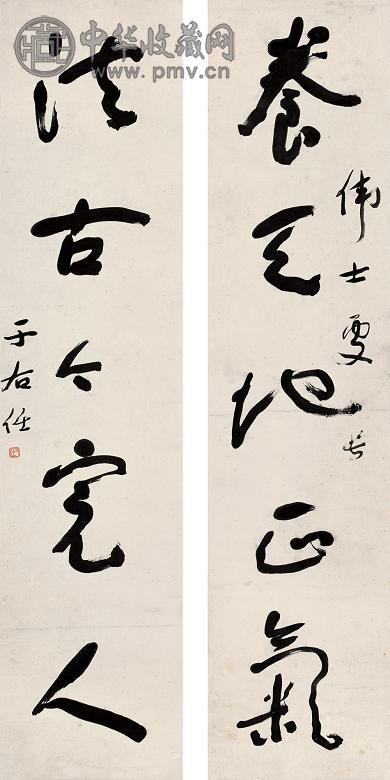 中华收藏网
www.pmv.cn
偉士處長
養天地正氣
法古今完人
于右任